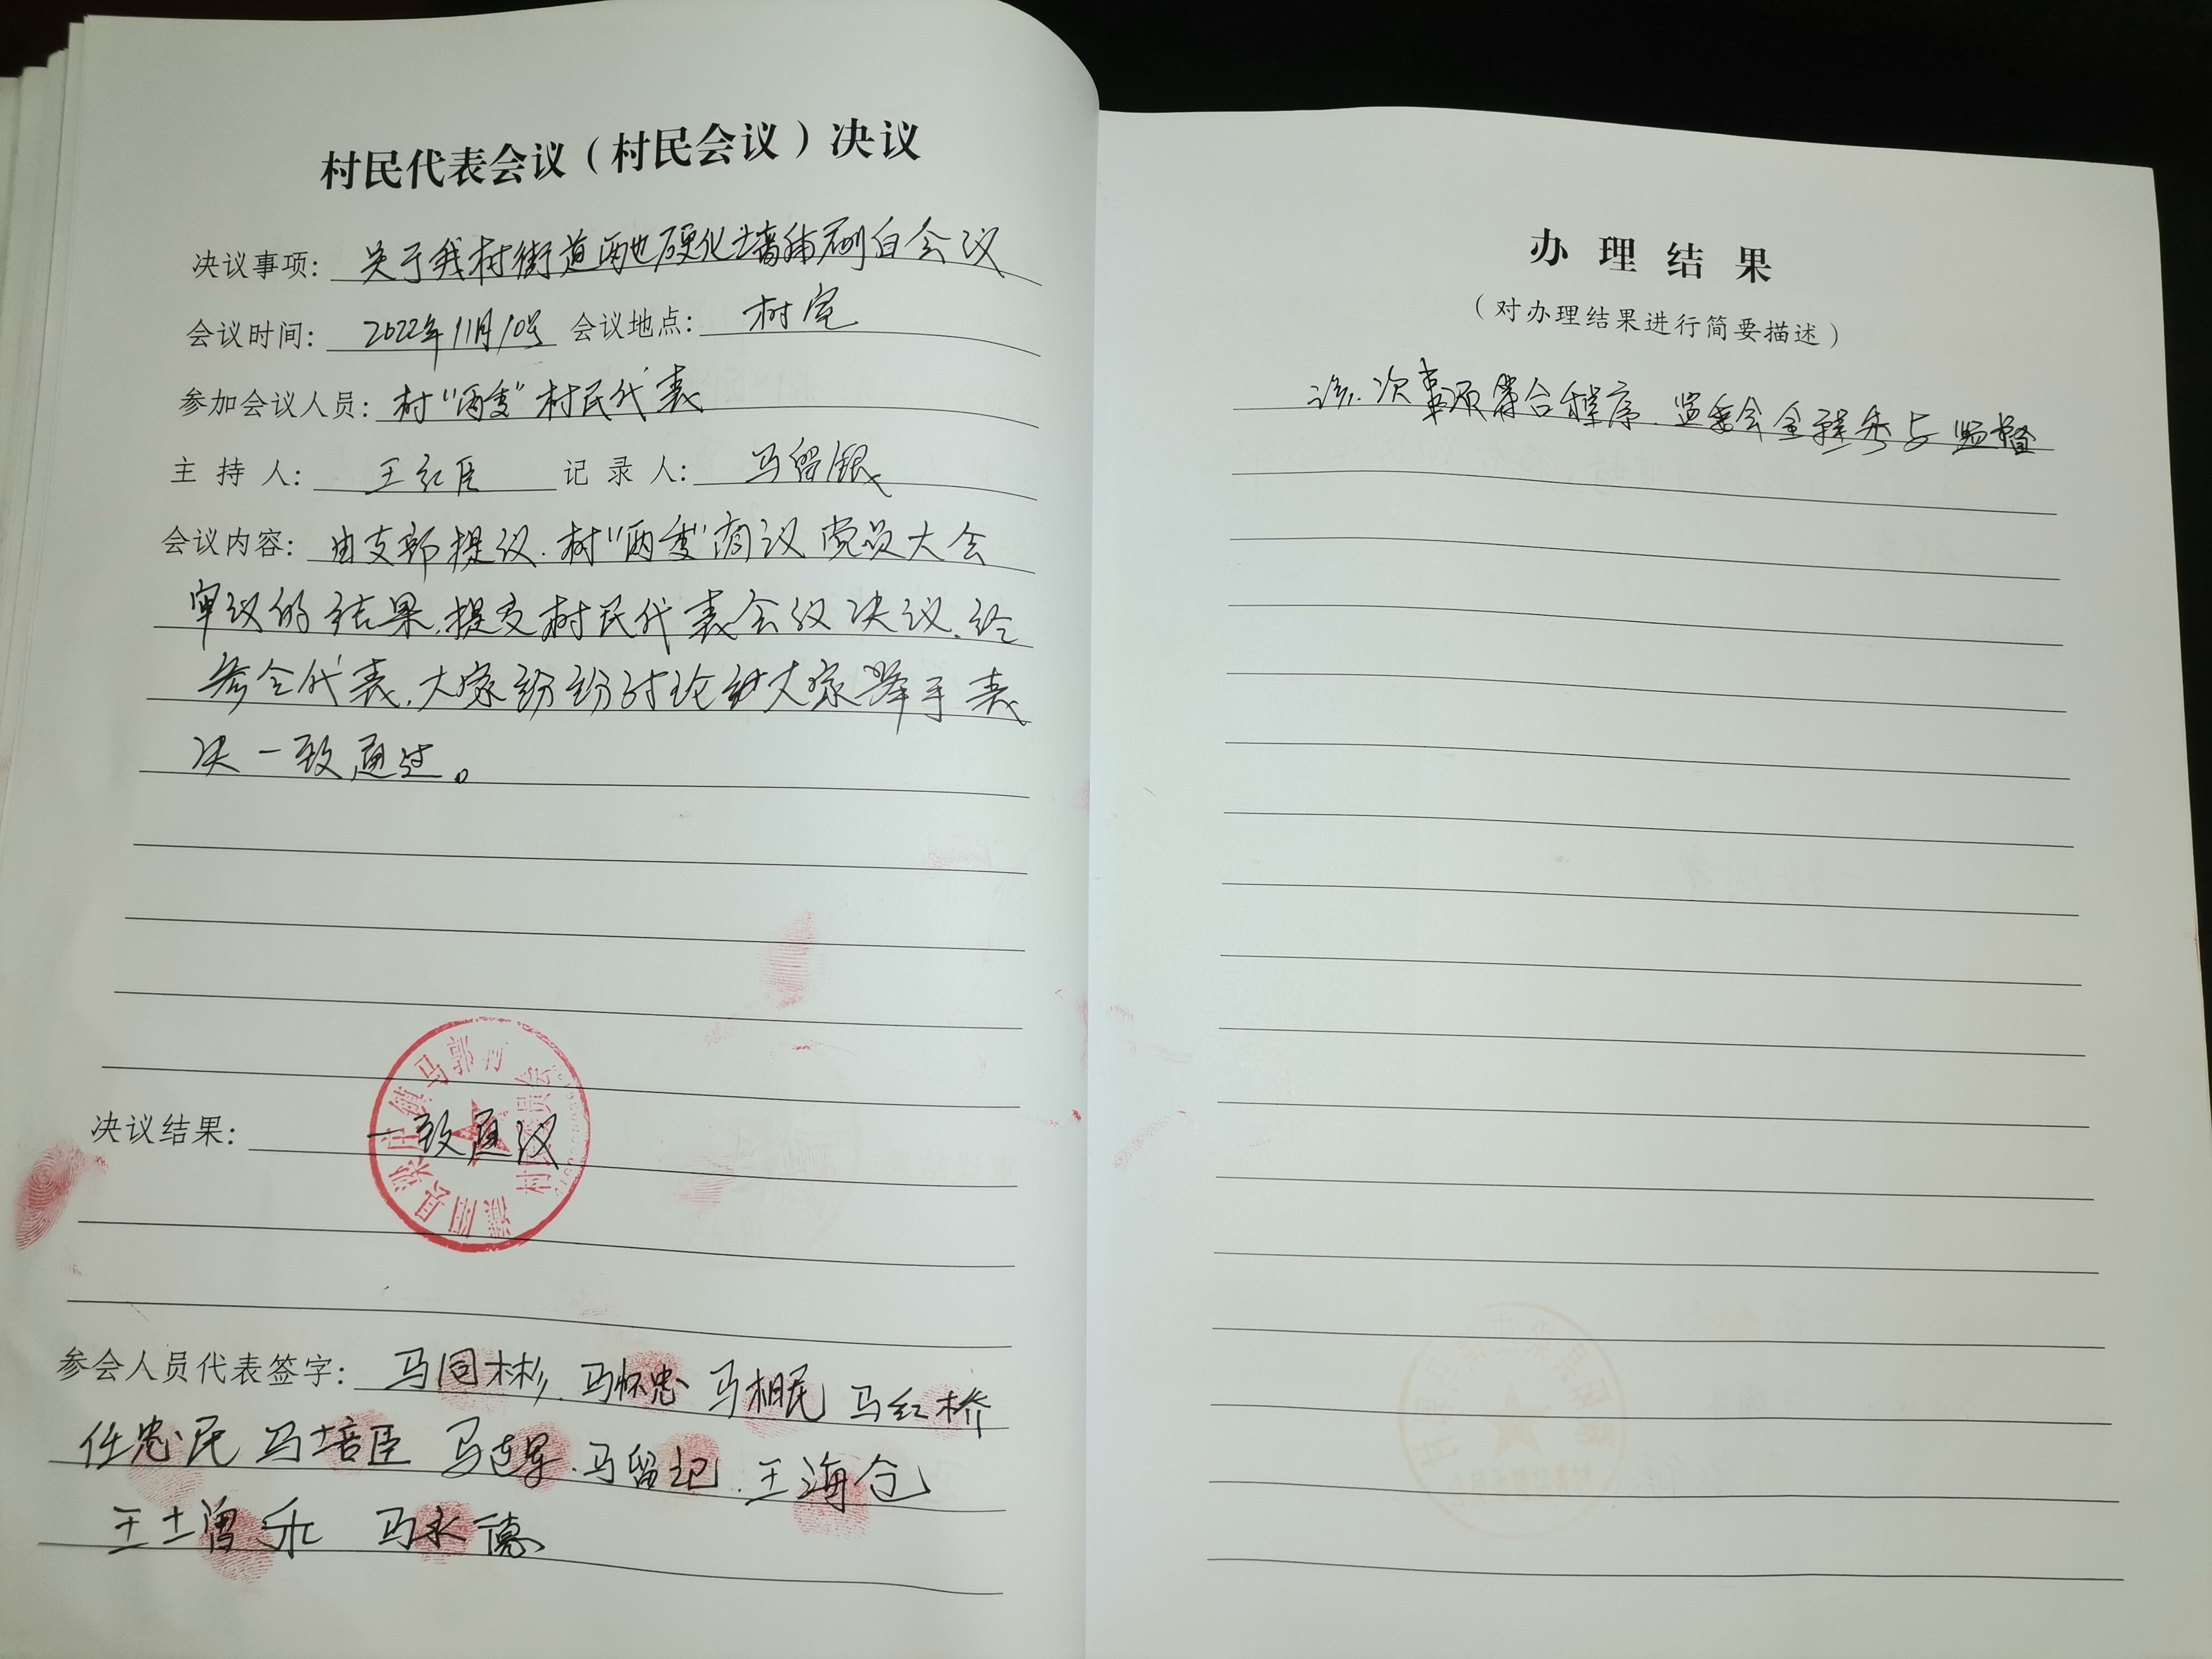 村民代表会议（村民会议）决议
决议事项: 关于我村街道两地硬化墙体刷白会议
会议时间: 2022年11月10号 会议地点: 村室
参加会议人员: 村“两委”村民代表
主持人: 王红臣 记录人: 马留银
会议内容: 由支部提议.村“两委”商议党员大会
审议的结果,提交村民代表会议决议.经
参会代表,大家纷纷讨论 大家举手表
决一致通过。
决议结果: 一致 议
濮阳县梁庄镇马郭村村民委员会
参会人员代表签字: 马同彬.马怀忠 马相民 马红桥
任忠民 马培臣 马连军.马留记.王海仓
王增乐 马永德
办理结果
（对办理结果进行简要描述）
该次事项符合程序.监委会全程参与监督